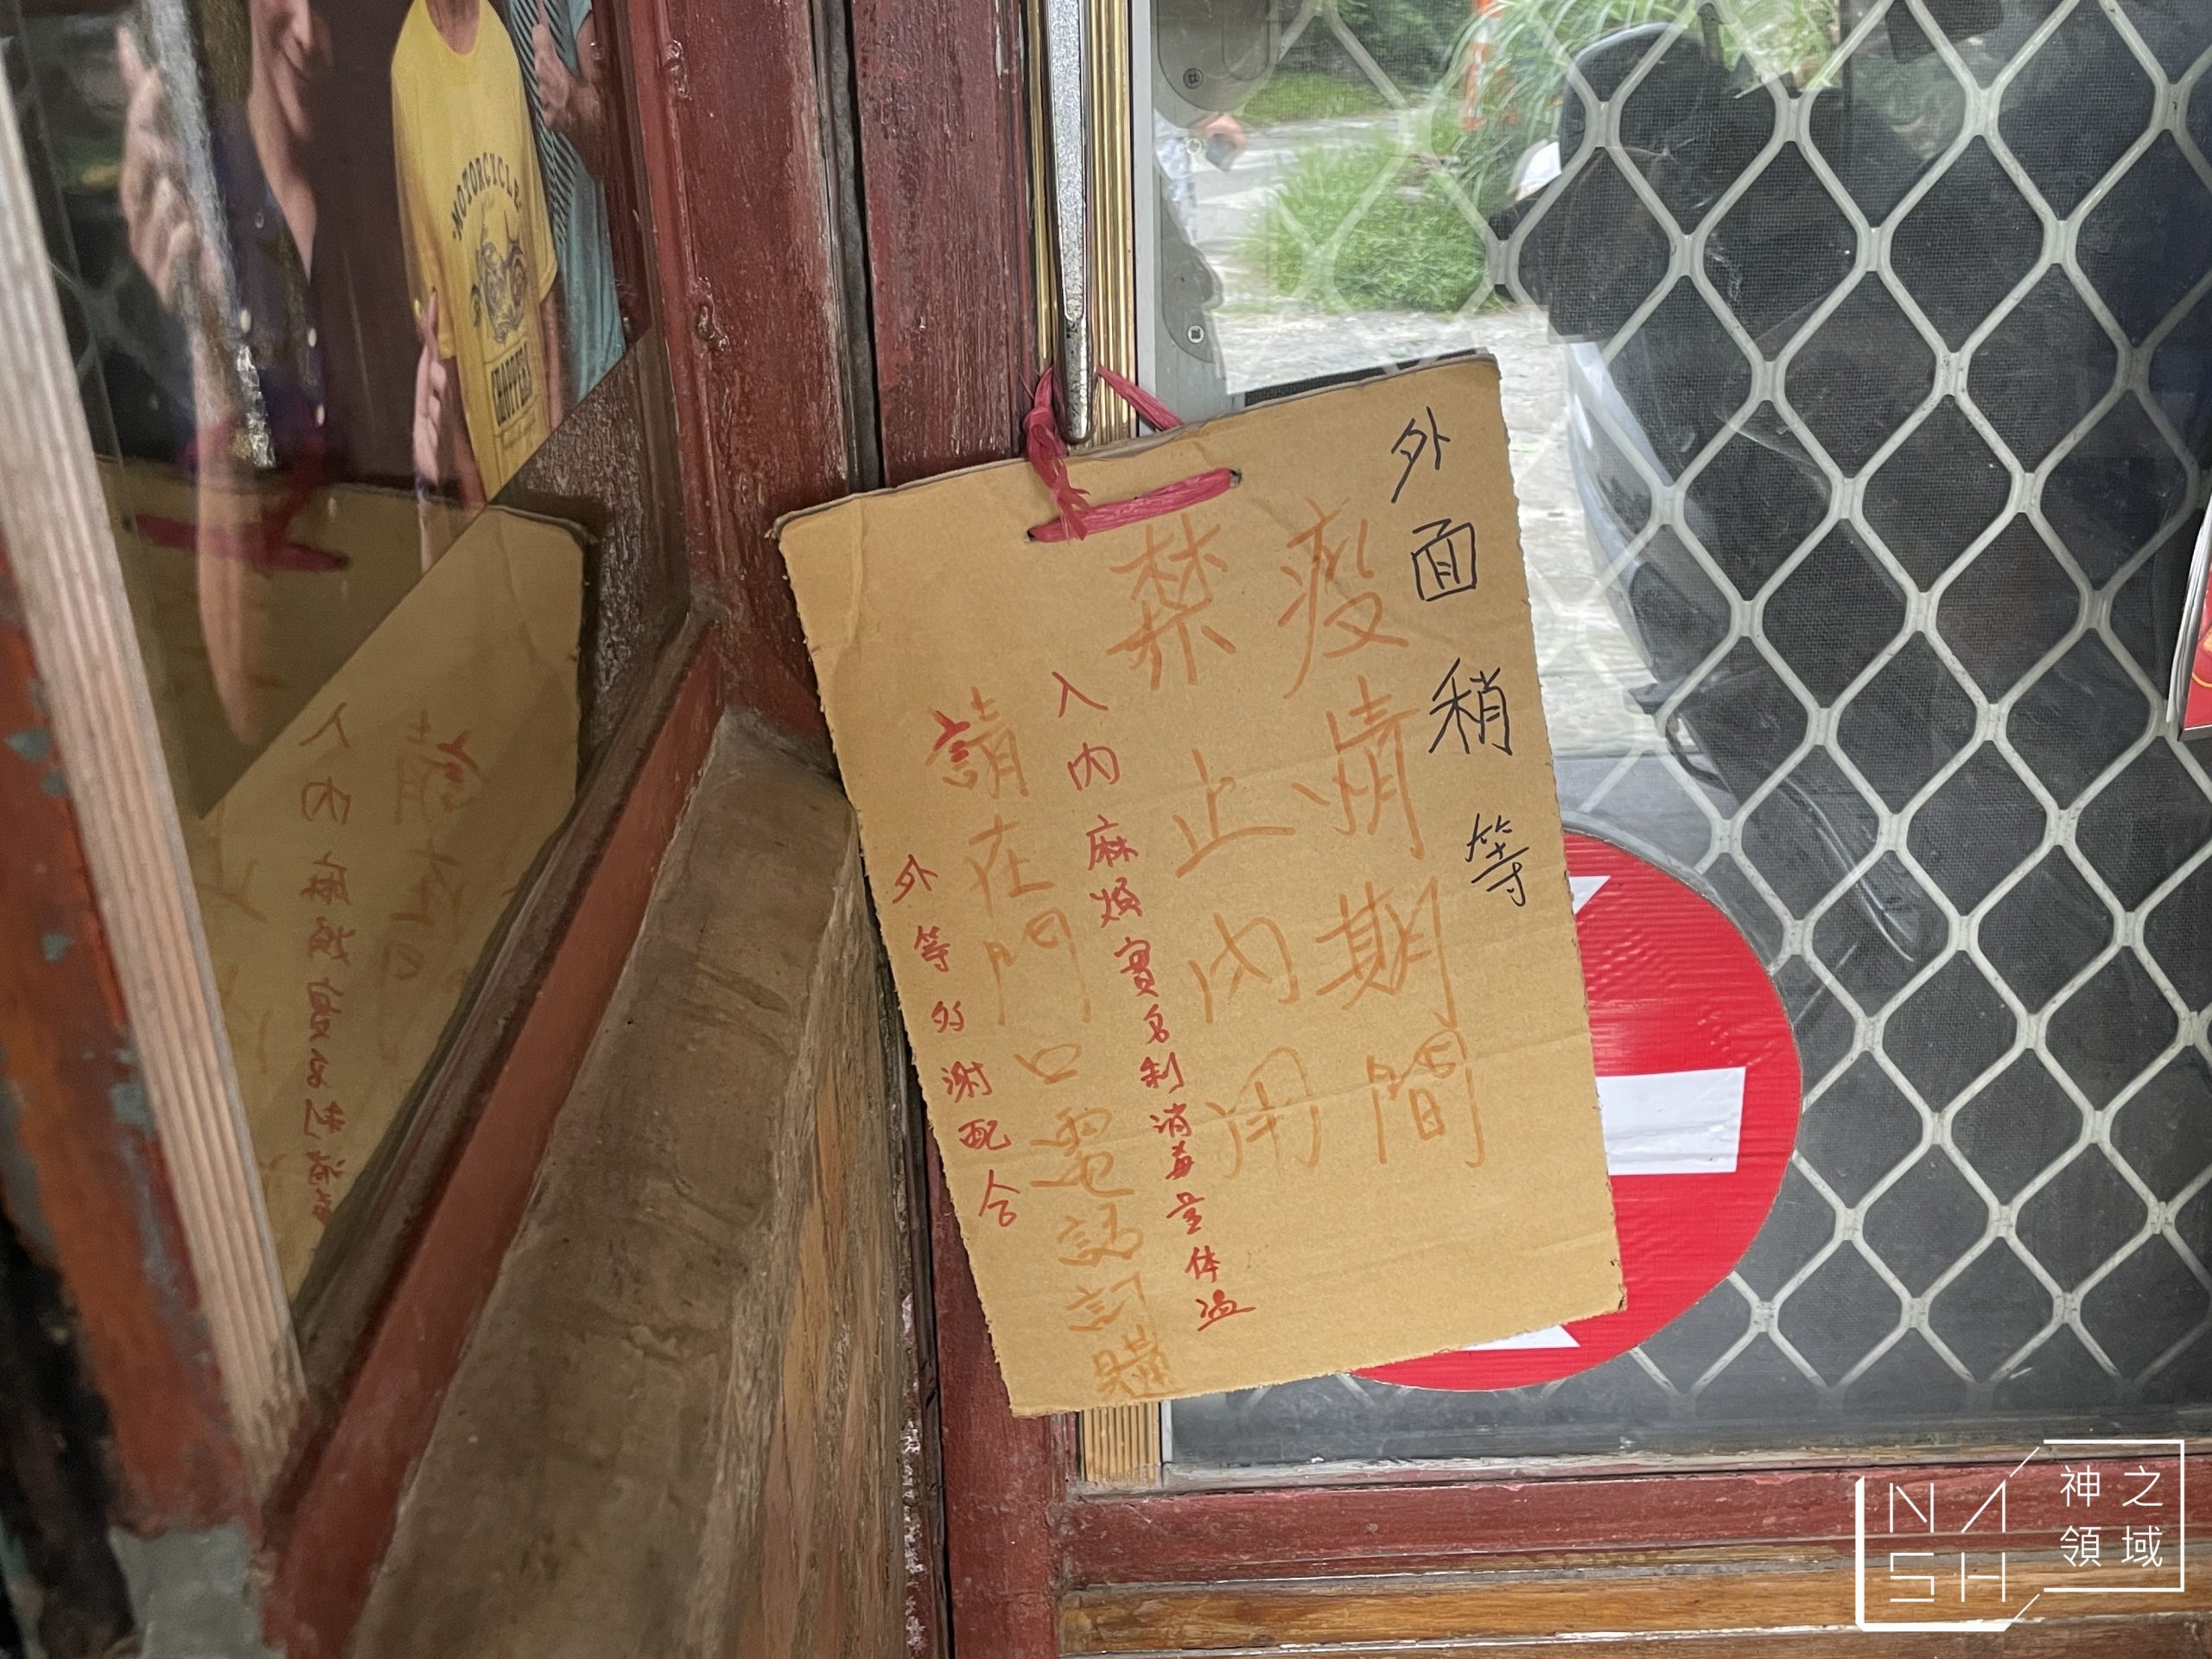 外面稍等
疫情期間
禁止內用
入內麻煩實名制消毒量体溫
請在門口電話訂購
外等的謝配合
MOTORCYCLE
CHOPPER
NASH
神之
領域